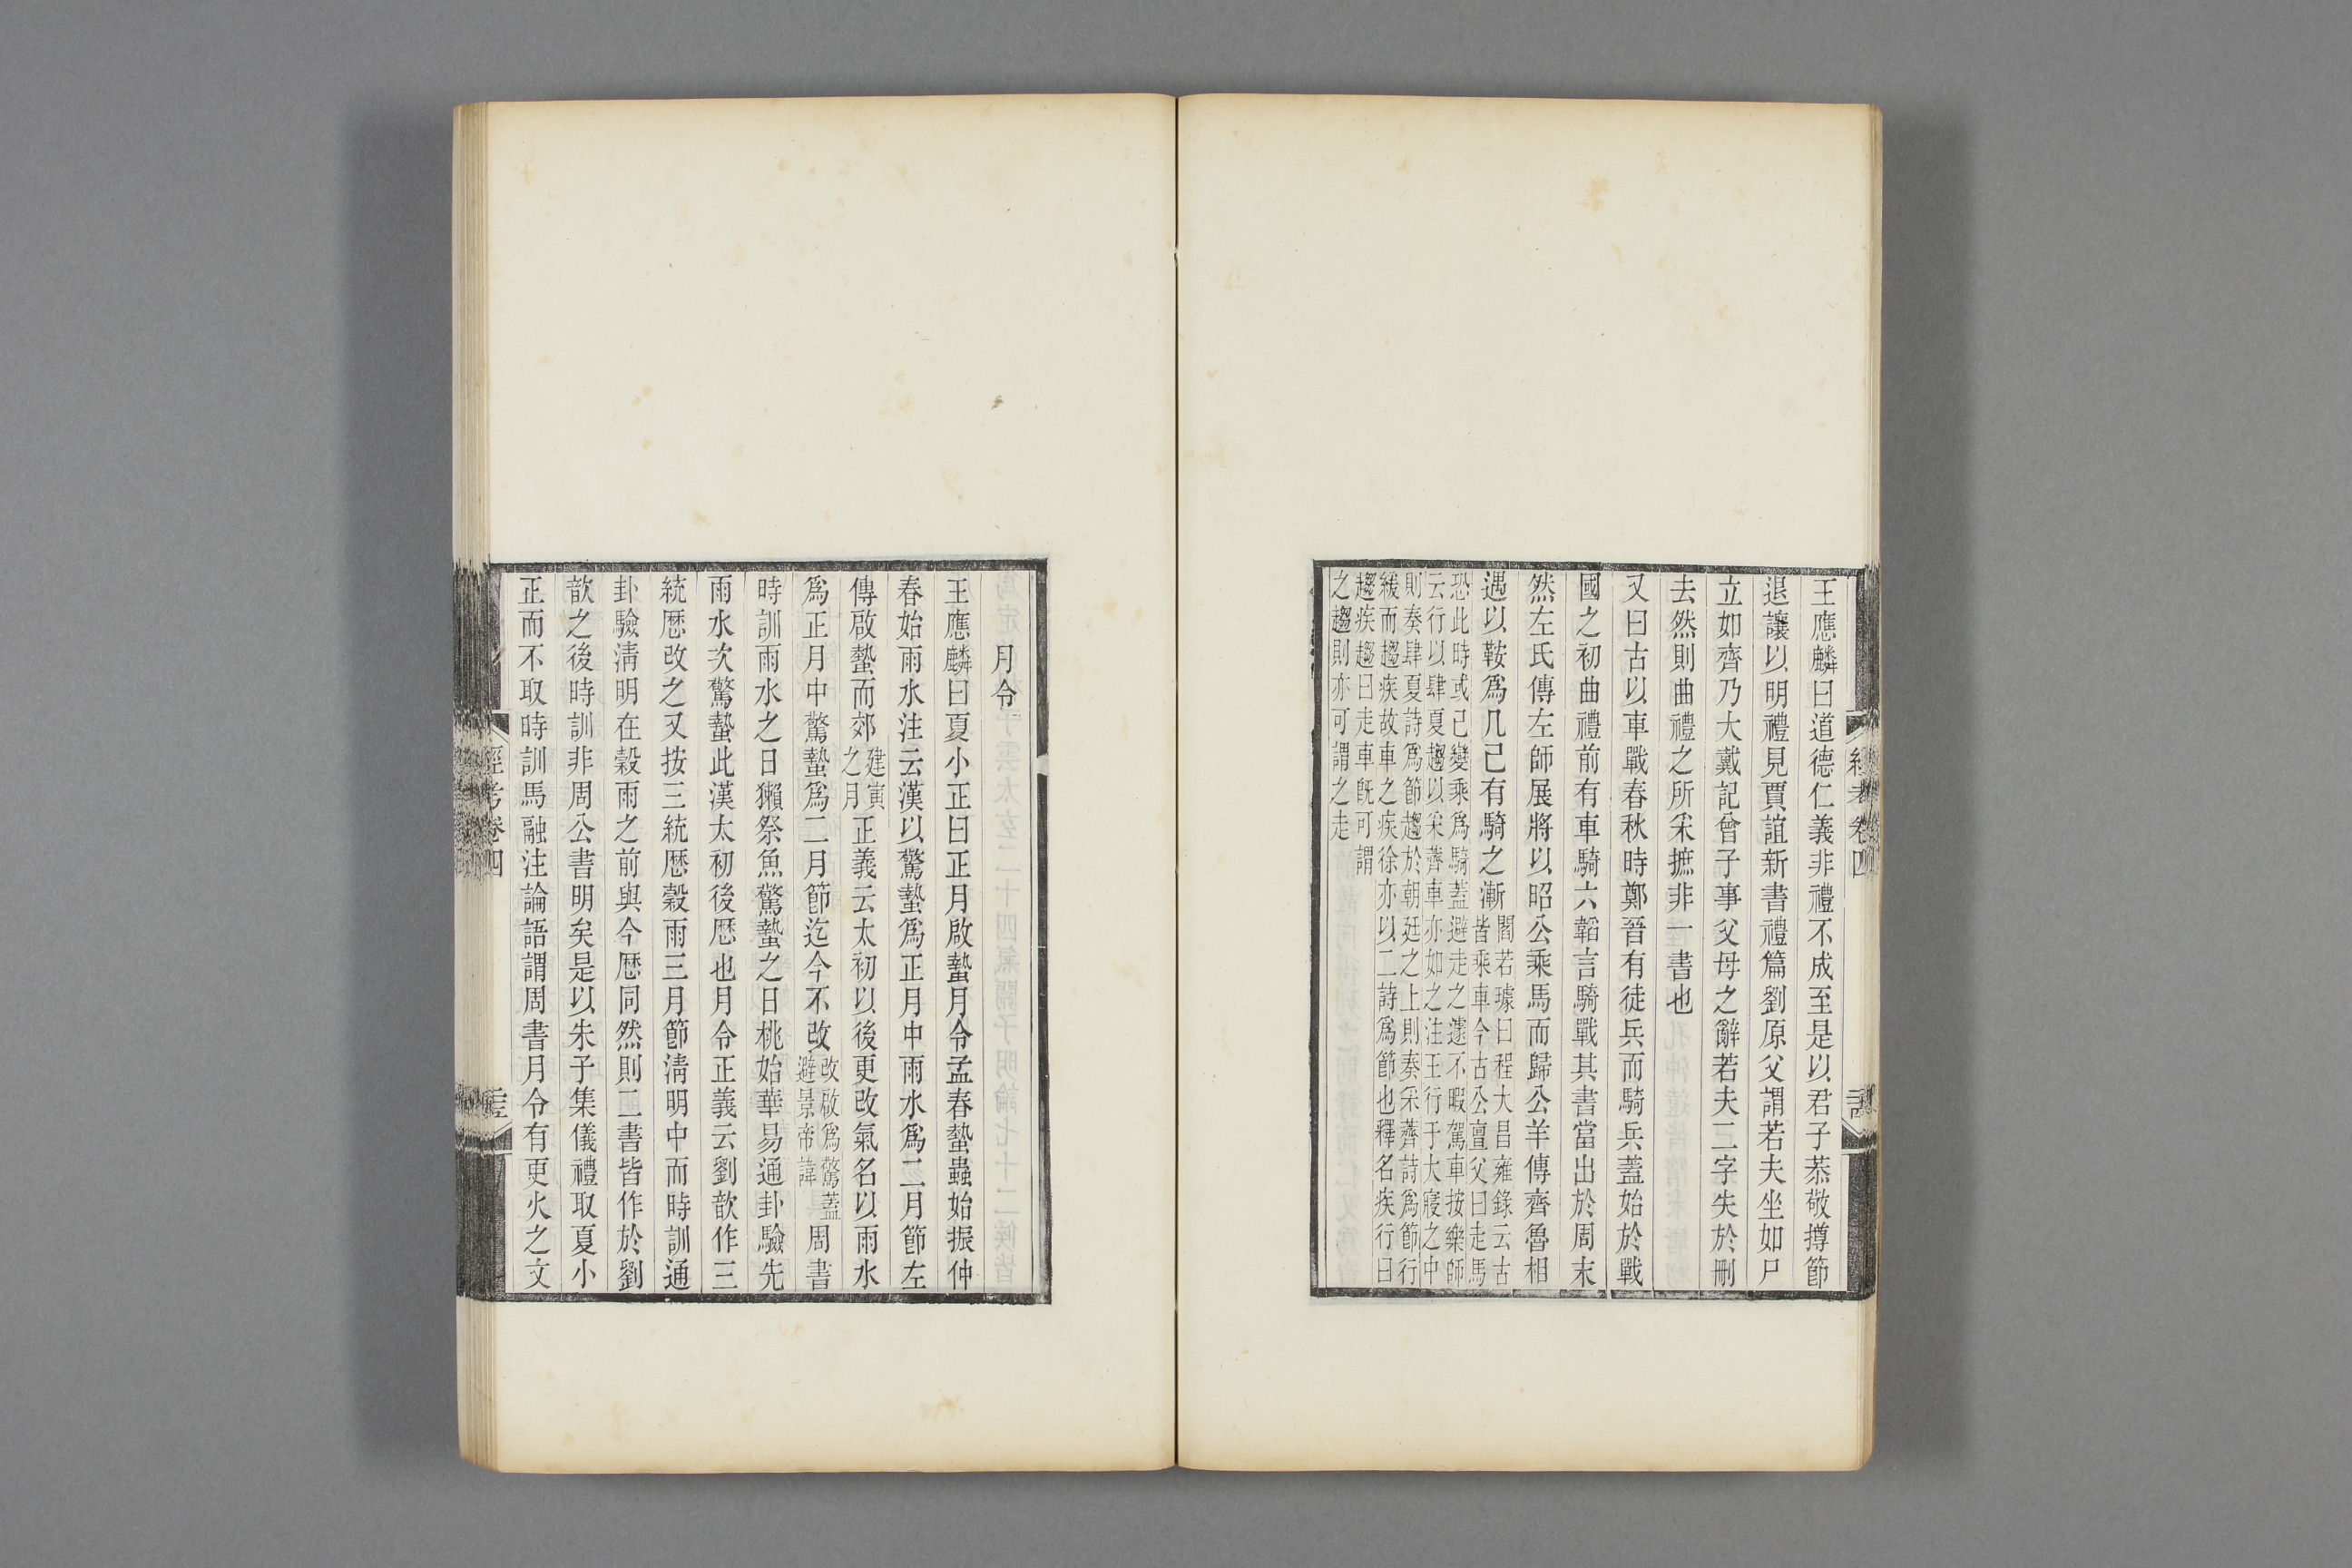 王應麟曰道德仁義非禮不成至是以君子恭敬撙節
退讓以明禮見賈誼新書禮篇劉原父謂若夫坐如尸
立如齊乃大戴記曾子事父母之辭若夫二字失於刪
去然則曲禮之所采摭非一書也
又曰古以車戰春秋時鄭晉有徒兵而騎兵蓋始於戰
國之初曲禮前有車騎六韜言騎戰其書當出於周末
然左氏傳左師展將以昭公乘馬而歸公羊傳齊魯相
遇以鞍爲几已有騎之漸
閻若璩曰程大昌雍錄云古
皆乘車今古公亶父曰走馬
恐此時或已變乘爲騎蓋避走之遽不暇駕車按樂師
云行以肆夏趨以采薺車亦如之注王行于大寢之中
則奏肆夏詩爲節趨於朝廷之上則奏采薺詩爲節行
緩而趨疾故車之疾徐亦以二詩爲節也釋名疾行曰
趨疾趨曰走車旣可謂
之趨則亦可謂之走
經考卷四
月令
王應麟曰夏小正曰正月啟蟄月令孟春蟄蟲始振仲
春始雨水注云漢以驚蟄爲正月中雨水爲二月節左
傳啟蟄而郊
建寅
之月
正義云太初以後更改氣名以雨水
爲正月中驚蟄爲二月節迄今不改
改啟爲驚蓋
避景帝諱
周書
時訓雨水之日獺祭魚驚蟄之日桃始華易通卦驗先
雨水次驚蟄此漢太初後厯也月令正義云劉歆作三
統厯改之又按三統厯穀雨三月節淸明中而時訓通
卦驗淸明在穀雨之前與今厯同然則二書皆作於劉
歆之後時訓非周公書明矣是以朱子集儀禮取夏小
正而不取時訓馬融注論語謂周書月令有更火之文
經考卷四